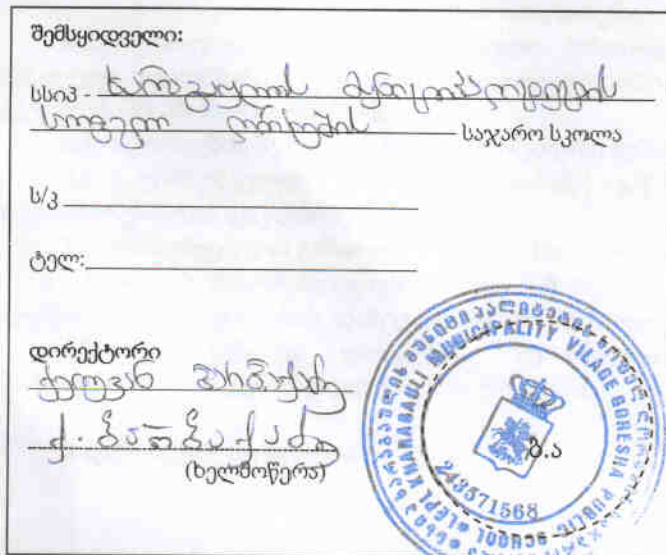 შემსყიდველი:
სსიპ - ხარაგაულის მუნიციპალიტეტის
სოფელ ღორეშის საჯარო სკოლა
ს/კ
ტელ:
დირექტორი
ქეთევან
(ხელმოწერა)
ბ.ა
KHARAGAULI MUNICIPALITY VILAGE GORESHA PUBLIC
243571568